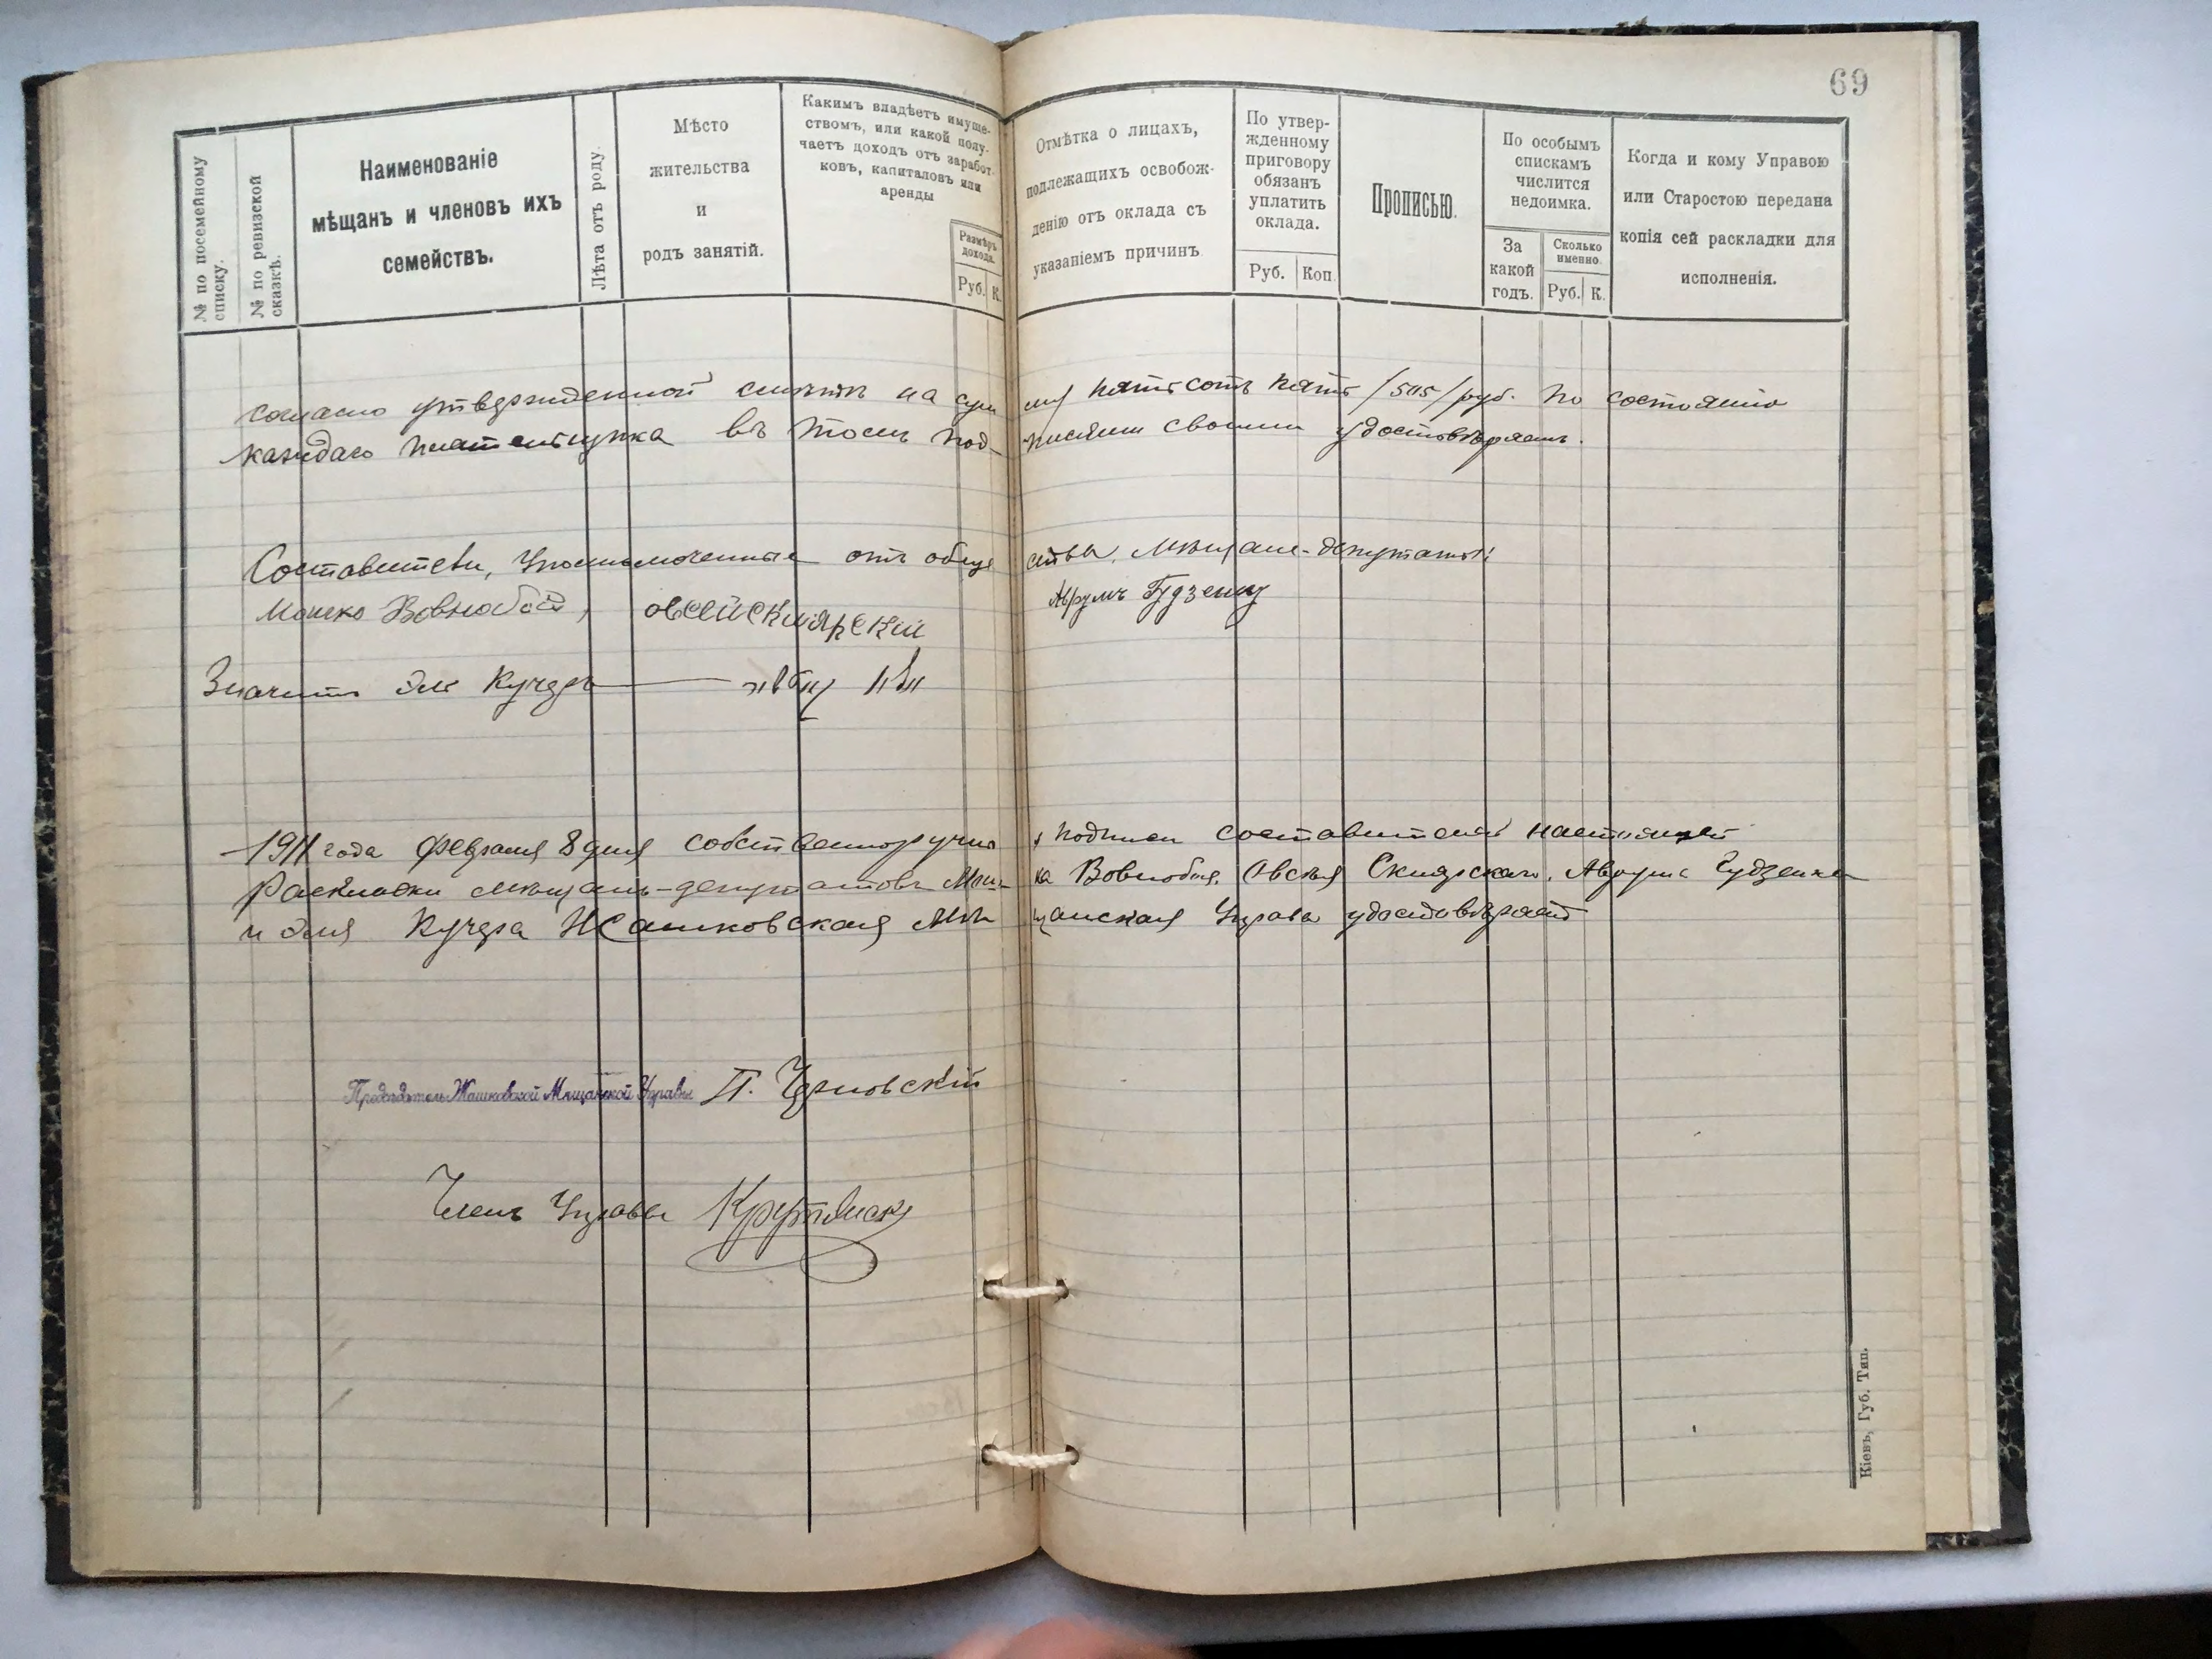 69
№ по посемейному
списку.
№ по ревизской
сказкѣ.
Наименованіе
мѣщанъ и членовъ ихъ
семействъ.
Лѣта отъ роду.
Мѣсто
жительства
и
родъ занятій.
Какимъ владѣетъ имуще-
ствомъ, или какой полу-
чаетъ доходъ отъ заработ-
ковъ, капиталовъ или
аренды
Размѣръ
дохода.
Руб. К.
Отмѣтка о лицахъ,
подлежащихъ освобож-
денію отъ оклада съ
указаніемъ причинъ
По утвер-
жденному
приговору
обязанъ
уплатить
оклада.
Руб. Коп.
Прописью.
По особымъ
спискамъ
числится
недоимка.
За
какой
годъ.
Сколько
именно.
Руб. К.
Когда и кому Управою
или Старостою передана
копія сей раскладки для
исполненія.
согласно утвержденной смѣтѣ на сумму пятьсотъ пять /505/ руб. по состоянію
каждаго плательщика въ томъ под-писями своими удостовѣряемъ.
Составители, Уполномоченные отъ общества, Мѣщане-депутаты:
Мошко Вовнобой, овсей скиярский Аврумъ Гудзенку
Значитъ Эли Кучеръ
1911 года февраля 8 дня собственноручно подписи составителей настоящей
Раскладки мѣщанъ-депутатовъ Мошка Вовнобоя, Овсея Скиярскаго, Аврума Гудзенка
и Эля Кучера Жашковская Мѣщанская Управа удостовѣряетъ
Предсѣдатель Жашковской Мѣщанской Управы П. Чарновскій
Членъ Управы
Кіевъ, Губ. Тип.